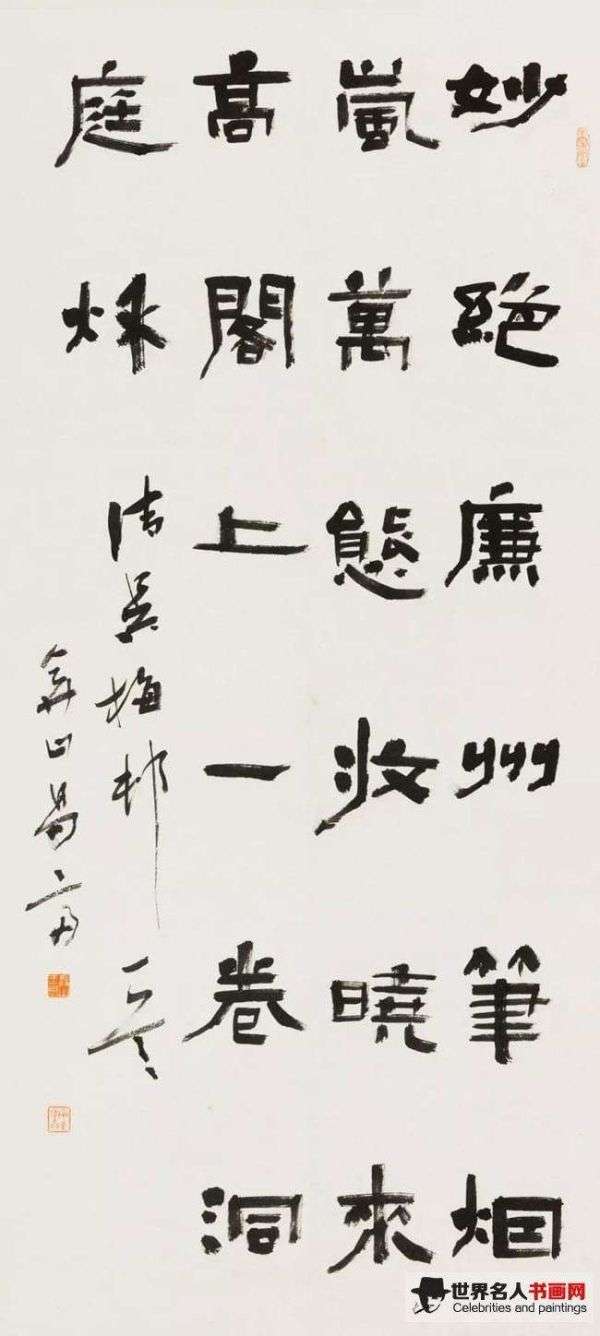 妙絕廉州筆烟
嵐萬態收曉來
高閣上一卷洞
庭秋
清吳梅邨
世界名人书画网
Celebrities and paintings